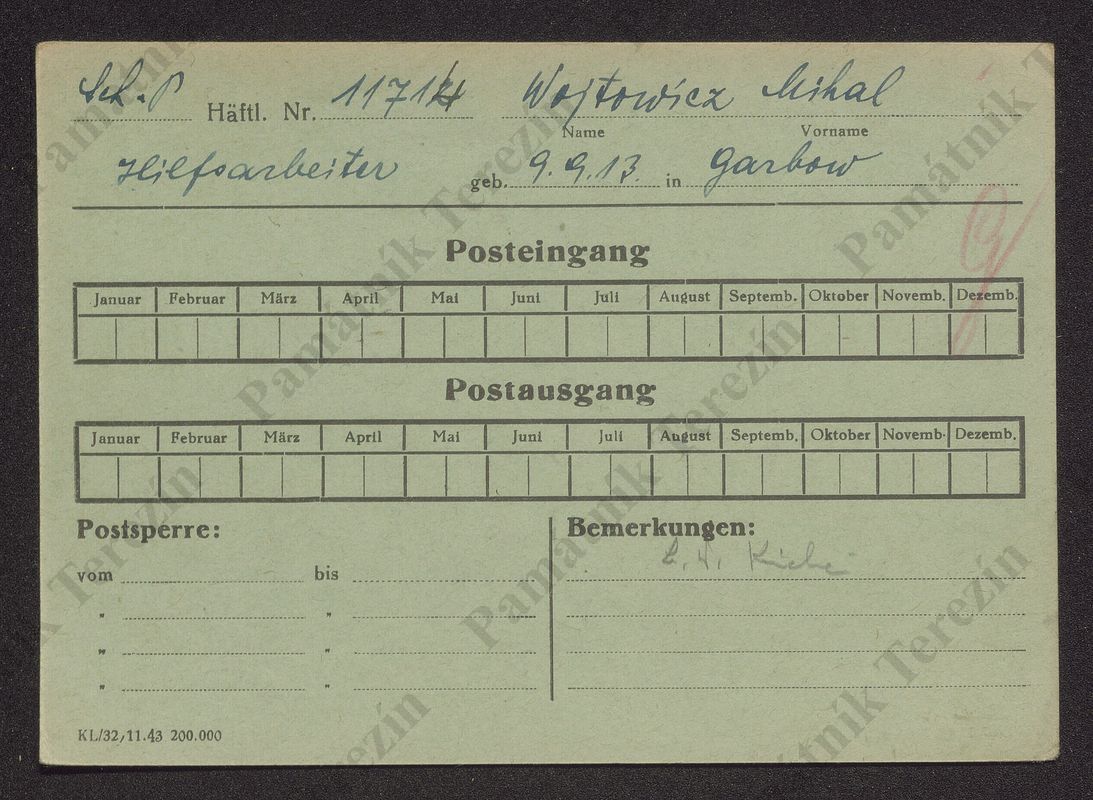 Sch. P Häftl. Nr. 11714 Wojtowicz Mihal
Name Vorname
Hilfsarbeiter geb. 9.9.13. in Garbow
Posteingang
Januar Februar März April Mai Juni Juli August Septemb. Oktober Novemb. Dezemb.
Postausgang
Januar Februar März April Mai Juni Juli August Septemb. Oktober Novemb. Dezemb.
Postsperre: Bemerkungen:
vom bis
" "
" "
" "
KL/32/11.43 200.000
Památník Terezín